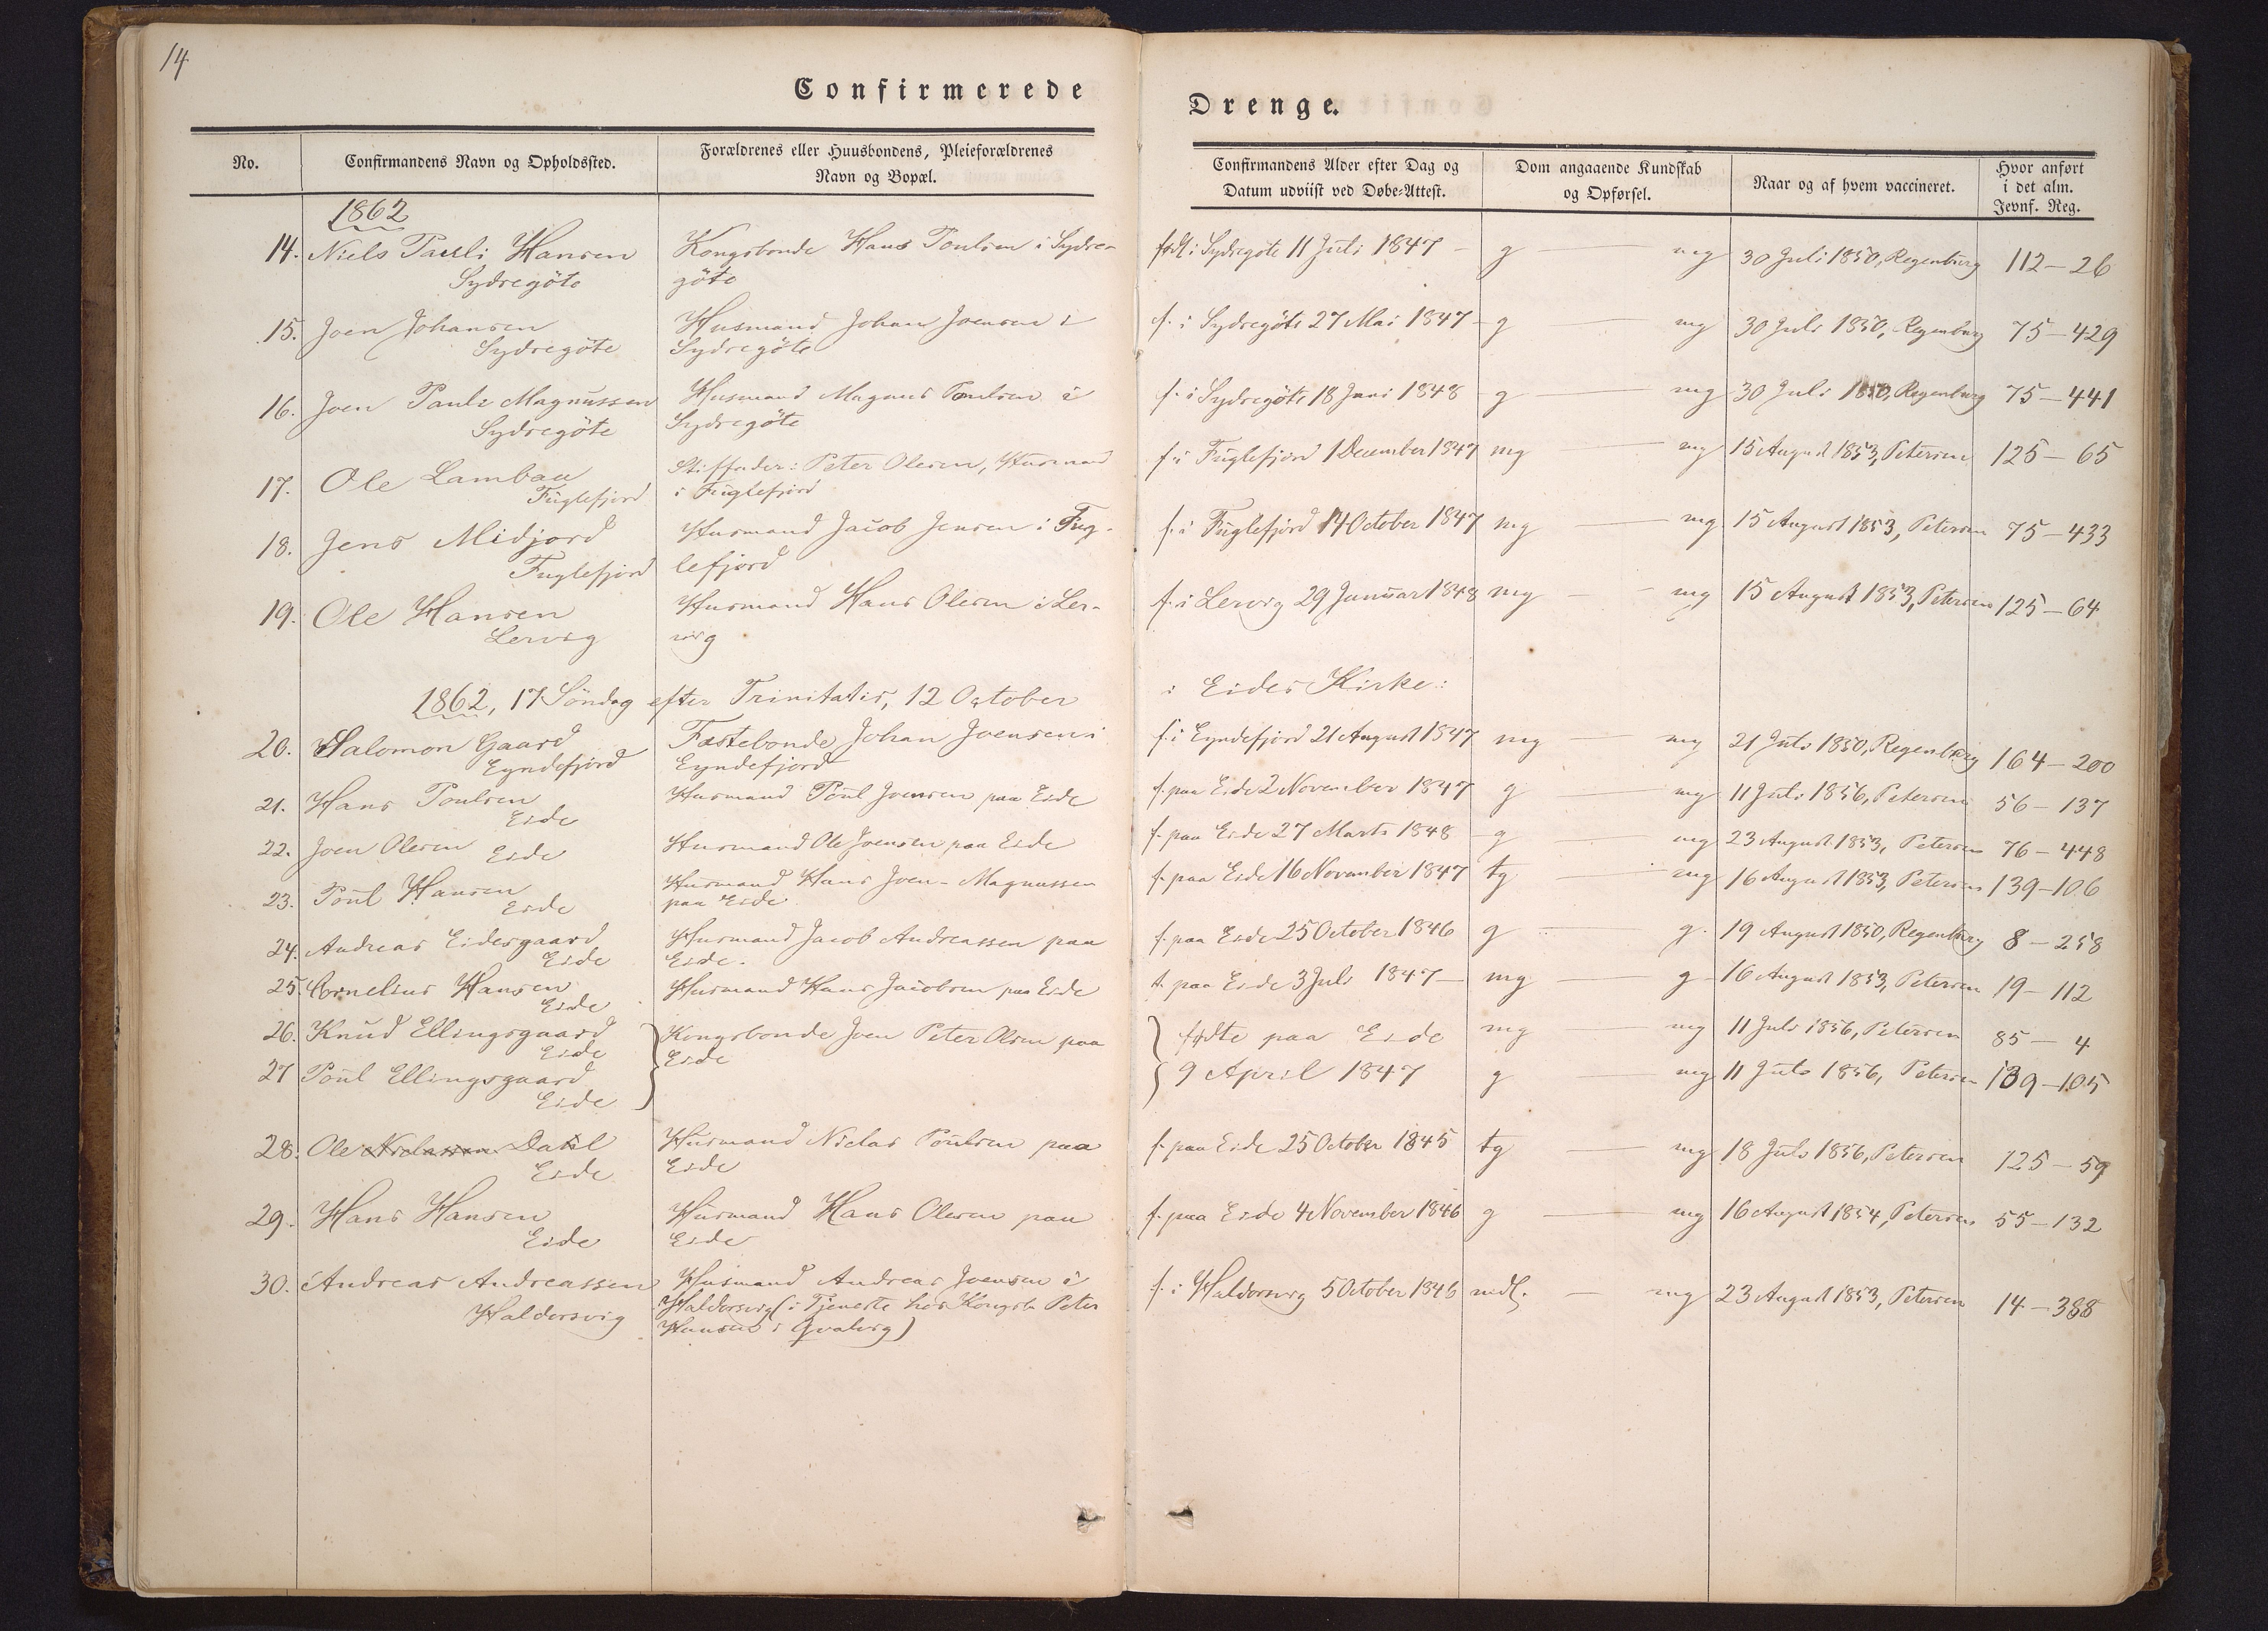 14
Confirmerede Drenge.
No. Confirmandens Navn og Opholdssted. Forældrenes eller Huusbondens, Pleieforældrenes Navn og Bopæl. Confirmandens Alder efter Dag og Datum udviist ved Døbe-Attest. Dom angaaende Kundskab og Opførsel. Naar og af hvem vaccineret. Hvor anført i det alm. Jevnf. Reg.
1862
14. Niels Pauli Hansen Kongsbonde Hans Poulsen i Sydre- født i Sydregöte 11 Juli 1847 - g — mg 30 Juli 1850, Regenburg 112-26
Sydregöte göte
15. Joen Johansen Husmand Johan Joensen i f. i Sydregöte 27 Mai 1847 - g — mg 30 Juli 1850, Regenburg 75-429
Sydregöte Sydregöte
16. Joen Pauli Magnussen Husmand Magnus Poulsen i f. i Sydregöte 18 Juni 1848 - g — mg 30 Juli 1850, Regenburg 75-441
Sydregöte Sydregöte
17. Ole Lambaa Stiffader: Peter Olesen, Husmand f. i Fuglefjord 1 December 1847 mg — mg 15 August 1853, Petersen 125-65
Fuglefjord i Fuglefjord
18. Jens Midjord Husmand Jacob Jensen i Fug- f. i Fuglefjord 14 October 1847 mg — mg 15 August 1853, Petersen 75-433
Fuglefjord lefjord
19. Ole Hansen Husmand Hans Olesen i Ler- f. i Lervig 29 Januar 1848 mg — mg 15 August 1853, Petersen 125-64
Lervig vig
1862, 17 Söndag efter Trinitatis, 12 October i Eides Kirke:
20. Salomon Gaard Fæstebonde Johan Joensen i f. i Eyndefjord 21 August 1847 mg — mg 21 Juli 1850, Regenburg 164-200
Eyndefjord Eyndefjord
21. Hans Poulsen Husmand Poul Joensen paa Eide f. paa Eide 2 November 1847 g — mg 11 Juli 1856, Petersen 56-137
Eide
22. Joen Olesen Husmand Ole Joensen paa Eide f. paa Eide 27 Marts 1848 - g — mg 23 August 1853, Petersen 76-448
Eide
23. Poul Hansen Husmand Hans Joen-Magnussen f. paa Eide 16 November 1847 tg — mg 16 August 1853, Petersen 139-106
Eide paa Eide
24. Andreas Eidesgaard Husmand Jacob Andreassen paa f. paa Eide 25 October 1846 g — g. 19 August 1850, Regenburg 8-258
Eide Eide.
25. Cornelius Hansen Husmand Hans Jacobsen paa Eide f. paa Eide 3 Juli 1847 - mg — g 16 August 1853, Petersen 19-112
Eide
26. Knud Ellingsgaard Kongsbonde Joen Peter Olsen paa fødte paa Eide mg — mg 11 Juli 1856, Petersen 85-4
Eide Eide
27 Poul Ellingsgaard 9 April 1847 g — mg 11 Juli 1856, Petersen 139-105
Eide
28. Ole Niclassen Dahl Husmand Niclas Poulsen paa f. paa Eide 25 October 1845 tg — mg 18 Juli 1856, Petersen 125-59
Eide Eide
29. Hans Hansen Husmand Hans Olesen paa f. paa Eide 4 November 1846 g — mg 16 August 1854, Petersen 55-132
Eide Eide
30. Andreas Andreassen Husmand Andreas Joensen i f. i Haldorsvig 5 October 1846 mdl. — mg 23 August 1853, Petersen 14-388
Haldorsvig Haldorsvig (i Tjeneste hos Kongsb. Peter
Hansen i Qvalvig)